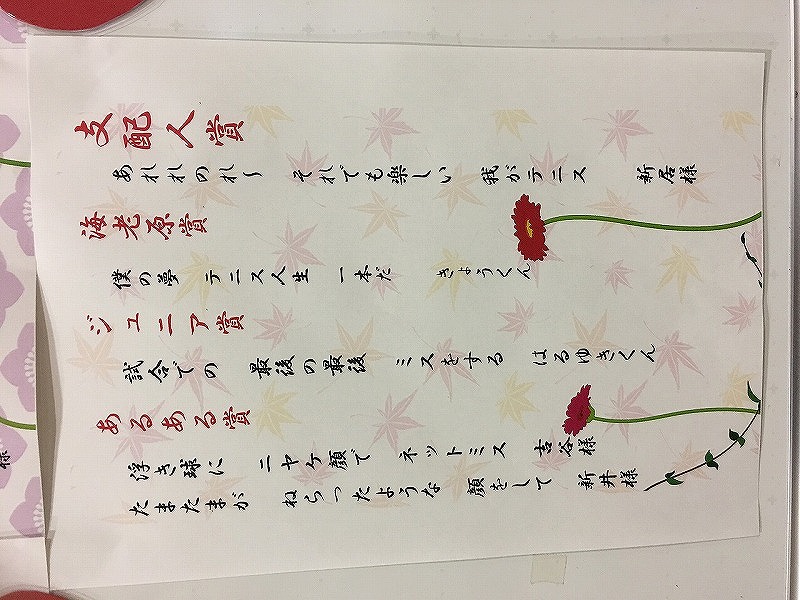 支配人賞
あれれのれ～　それでも楽しい　我がテニス　新居様
海老原賞
僕の夢　テニス人生　一本だ　きょうくん
ジュニア賞
試合での　最後の最後　ミスをする　はるゆきくん
あるある賞
浮き球に　ニヤケ顔で　ネットミス　吉谷様
たまたまが　ねらったような　顔をして　新井様
様